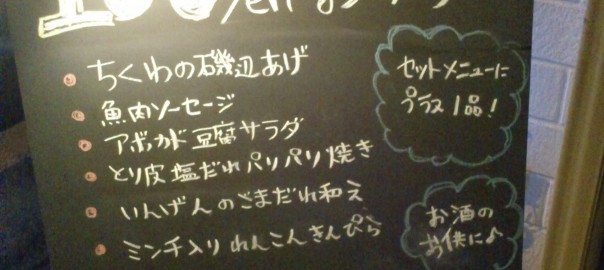 ちくわの磯辺あげ
魚肉ソーセージ
アボカド豆腐サラダ
とり皮塩だれパリパリ焼き
いんげんのごまだれ和え
ミンチ入りれんこんきんぴら
セットメニューに
プラス1品!
お酒の
お供に♪